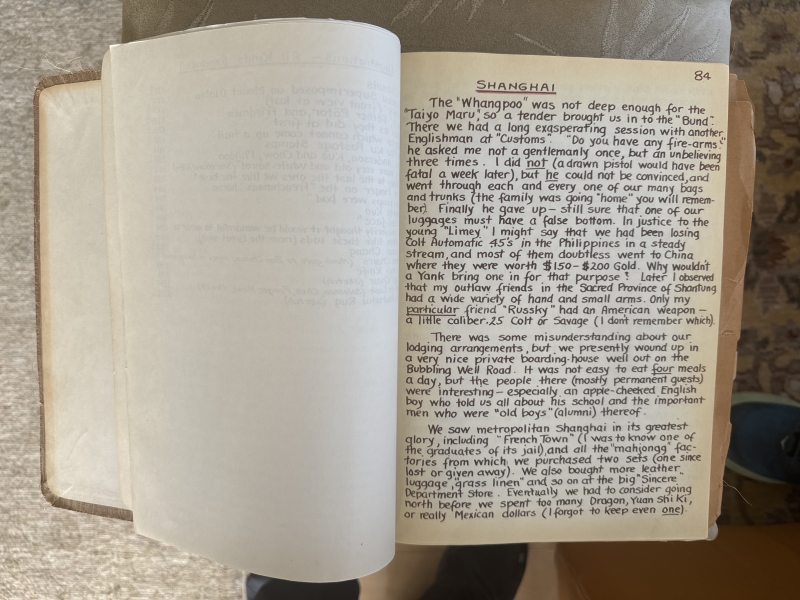 84
SHANGHAI
The "Whangpoo" was not deep enough for the
"Taiyo Maru", so a tender brought us in to the "Bund".
There we had a long exasperating session with another
Englishman at "Customs". "Do you have any fire-arms?"
he asked me not a gentlemanly once, but an unbelieving
three times. I did not (a drawn pistol would have been
fatal a week later), but he could not be convinced, and
went through each and every one of our many bags
and trunks (the family was going "home" you will remem-
ber). Finally he gave up - still sure that one of our
luggages must have a false bottom. In justice to the
young "Limey" I might say that we had been losing
Colt Automatic 45's in the Philippines in a steady
stream, and most of them doubtless went to China
where they were worth $150-$200 Gold. Why wouldn't
a Yank bring one in for that purpose? Later I observed
that my outlaw friends in the Sacred Province of Shantung
had a wide variety of hand and small arms. Only my
particular friend "Russky" had an American weapon -
a little caliber .25 Colt or Savage (I don't remember which).
There was some misunderstanding about our
lodging arrangements, but we presently wound up in
a very nice private boarding-house well out on the
Bubbling Well Road. It was not easy to eat four meals
a day, but the people there (mostly permanent guests)
were interesting - especially an apple-cheeked English
boy who told us all about his school and the important
men who were "old boys" (alumni) thereof.
We saw metropolitan Shanghai in its greatest
glory, including "French Town" (I was to know one of
the graduates of its jail), and all the "mahjongg" fac-
tories from which we purchased two sets (one since
lost or given away). We also bought more leather
luggage, "grass linen" and so on at the big "Sincere"
Department Store. Eventually we had to consider going
north before we spent too many Dragon, Yuan Shi Ki,
or really Mexican dollars (I forgot to keep even one).